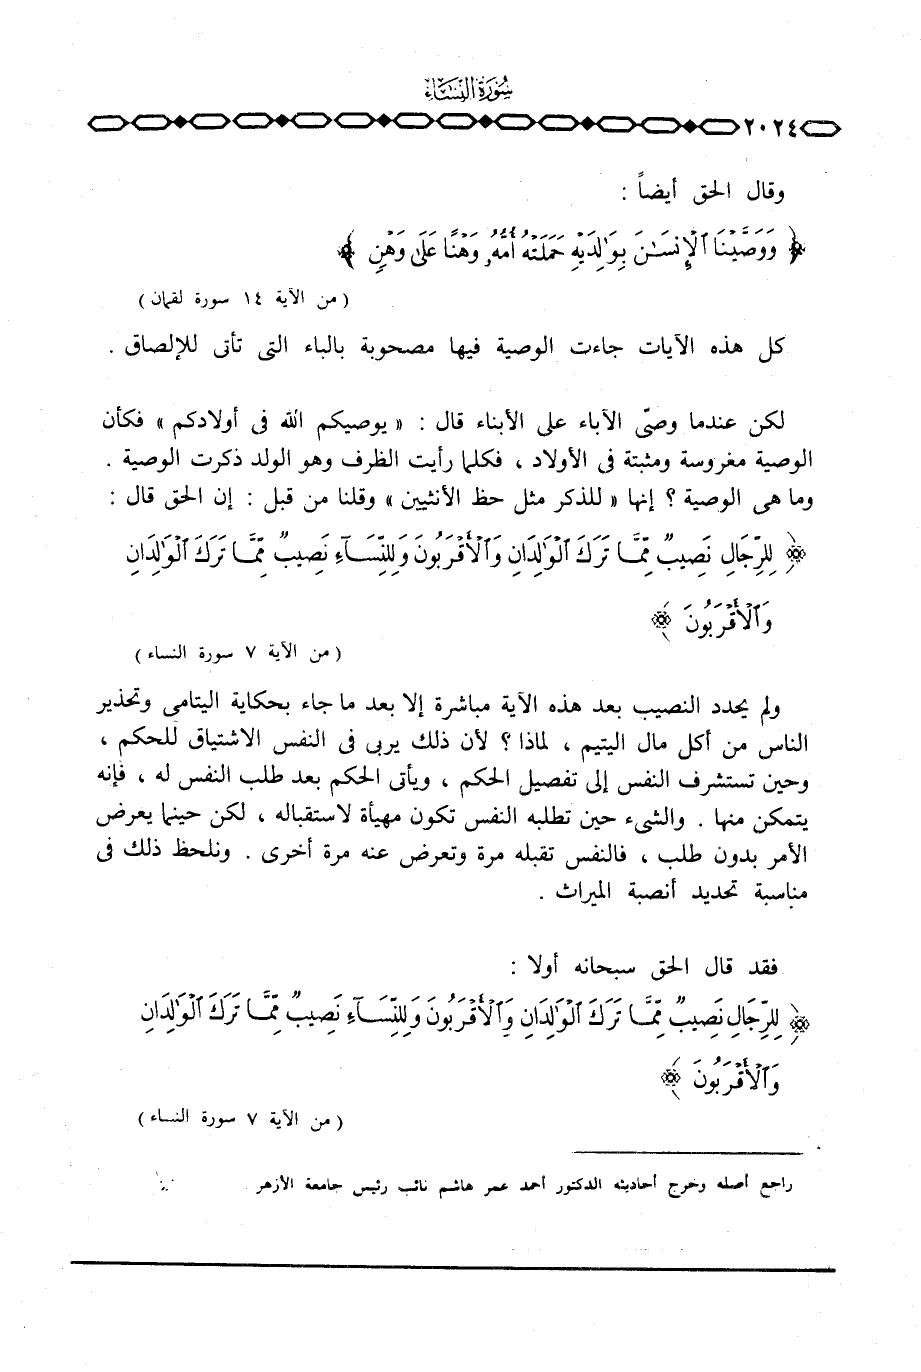 سُورَةُ النِّسَاءِ
٢٠٢٤
وقال الحق أيضاً :
﴿ وَوَصَّيْنَا ٱلْإِنسَٰنَ بِوَٰلِدَيْهِ حَمَلَتْهُ أُمُّهُۥ وَهْنًا عَلَىٰ وَهْنٍ ﴾
( من الآية ١٤ سورة لقمان )
كل هذه الآيات جاءت الوصية فيها مصحوبة بالباء التى تأتى للإلصاق .
لكن عندما وصّى الآباء على الأبناء قال : « يوصيكم الله فى أولادكم » فكأن
الوصية مغروسة ومثبتة فى الأولاد ، فكلما رأيت الظرف وهو الولد ذكرت الوصية .
وما هى الوصية ؟ إنها « للذكر مثل حظ الأنثيين » وقلنا من قبل : إن الحق قال :
﴿ لِلرِّجَالِ نَصِيبٌ مِّمَّا تَرَكَ ٱلْوَٰلِدَانِ وَٱلْأَقْرَبُونَ وَلِلنِّسَآءِ نَصِيبٌ مِّمَّا تَرَكَ ٱلْوَٰلِدَانِ
وَٱلْأَقْرَبُونَ ﴾
( من الآية ٧ سورة النساء )
ولم يحدد النصيب بعد هذه الآية مباشرة إلا بعد ما جاء بحكاية اليتامى وتحذير
الناس من أكل مال اليتيم ، لماذا ؟ لأن ذلك يربى فى النفس الاشتياق للحكم ،
وحين تستشرف النفس إلى تفصيل الحكم ، ويأتى الحكم بعد طلب النفس له ، فإنه
يتمكن منها . والشىء حين تطلبه النفس تكون مهيأة لاستقباله ، لكن حينما يعرض
الأمر بدون طلب ، فالنفس تقبله مرة وتعرض عنه مرة أخرى . ونلحظ ذلك فى
مناسبة تحديد أنصبة الميراث .
فقد قال الحق سبحانه أولا :
﴿ لِلرِّجَالِ نَصِيبٌ مِّمَّا تَرَكَ ٱلْوَٰلِدَانِ وَٱلْأَقْرَبُونَ وَلِلنِّسَآءِ نَصِيبٌ مِّمَّا تَرَكَ ٱلْوَٰلِدَانِ
وَٱلْأَقْرَبُونَ ﴾
( من الآية ٧ سورة النساء )
راجع أصله وخرج أحاديثه الدكتور أحمد عمر هاشم نائب رئيس جامعة الأزهر